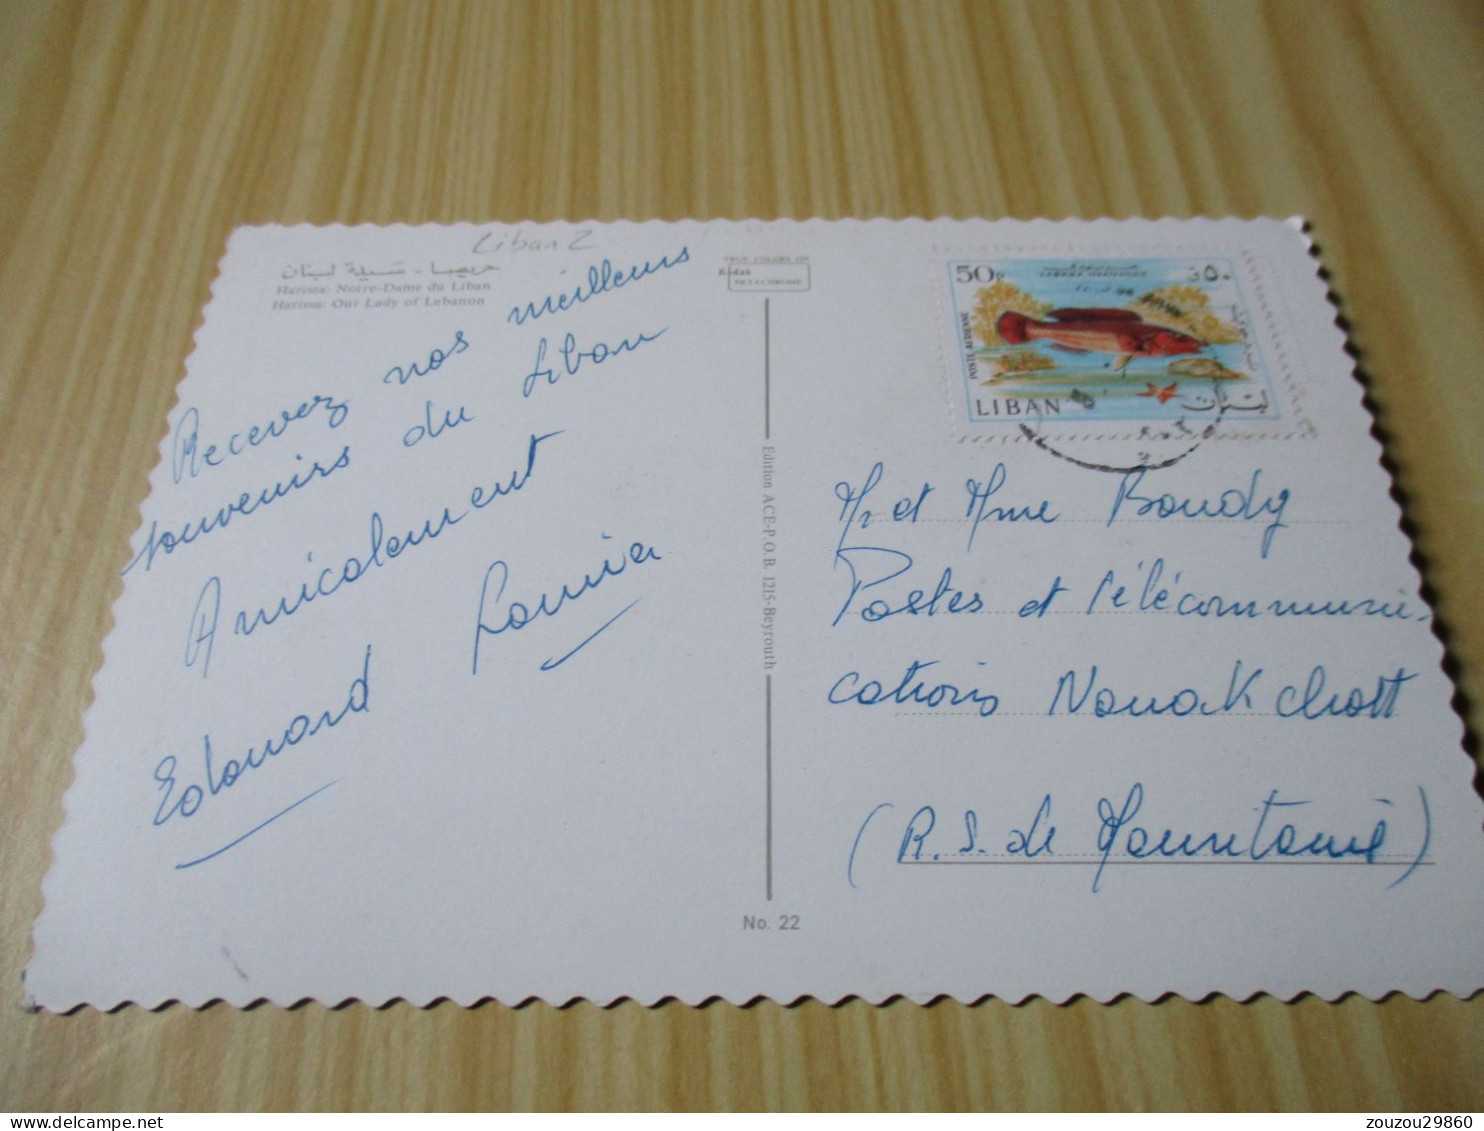 Liban 2
حريصا - سيدة لبنان
Harissa: Notre-Dame du Liban
Harissa: Our Lady of Lebanon
TRUE COLORS ON
Kodak
EKTACHROME
Recevez nos meilleurs
souvenirs du Liban
Amicalement
Edouard
Edition ACE-P.O.B. 1215-Beyrouth
No. 22
50P
٥٠
POSTE AERIENNE
LIBAN
لبنان
Mr et Mme Boudy
Postes et Télécommuni-
cations Nouakchott
(R.I. de Mauritanie)
zouzou29860